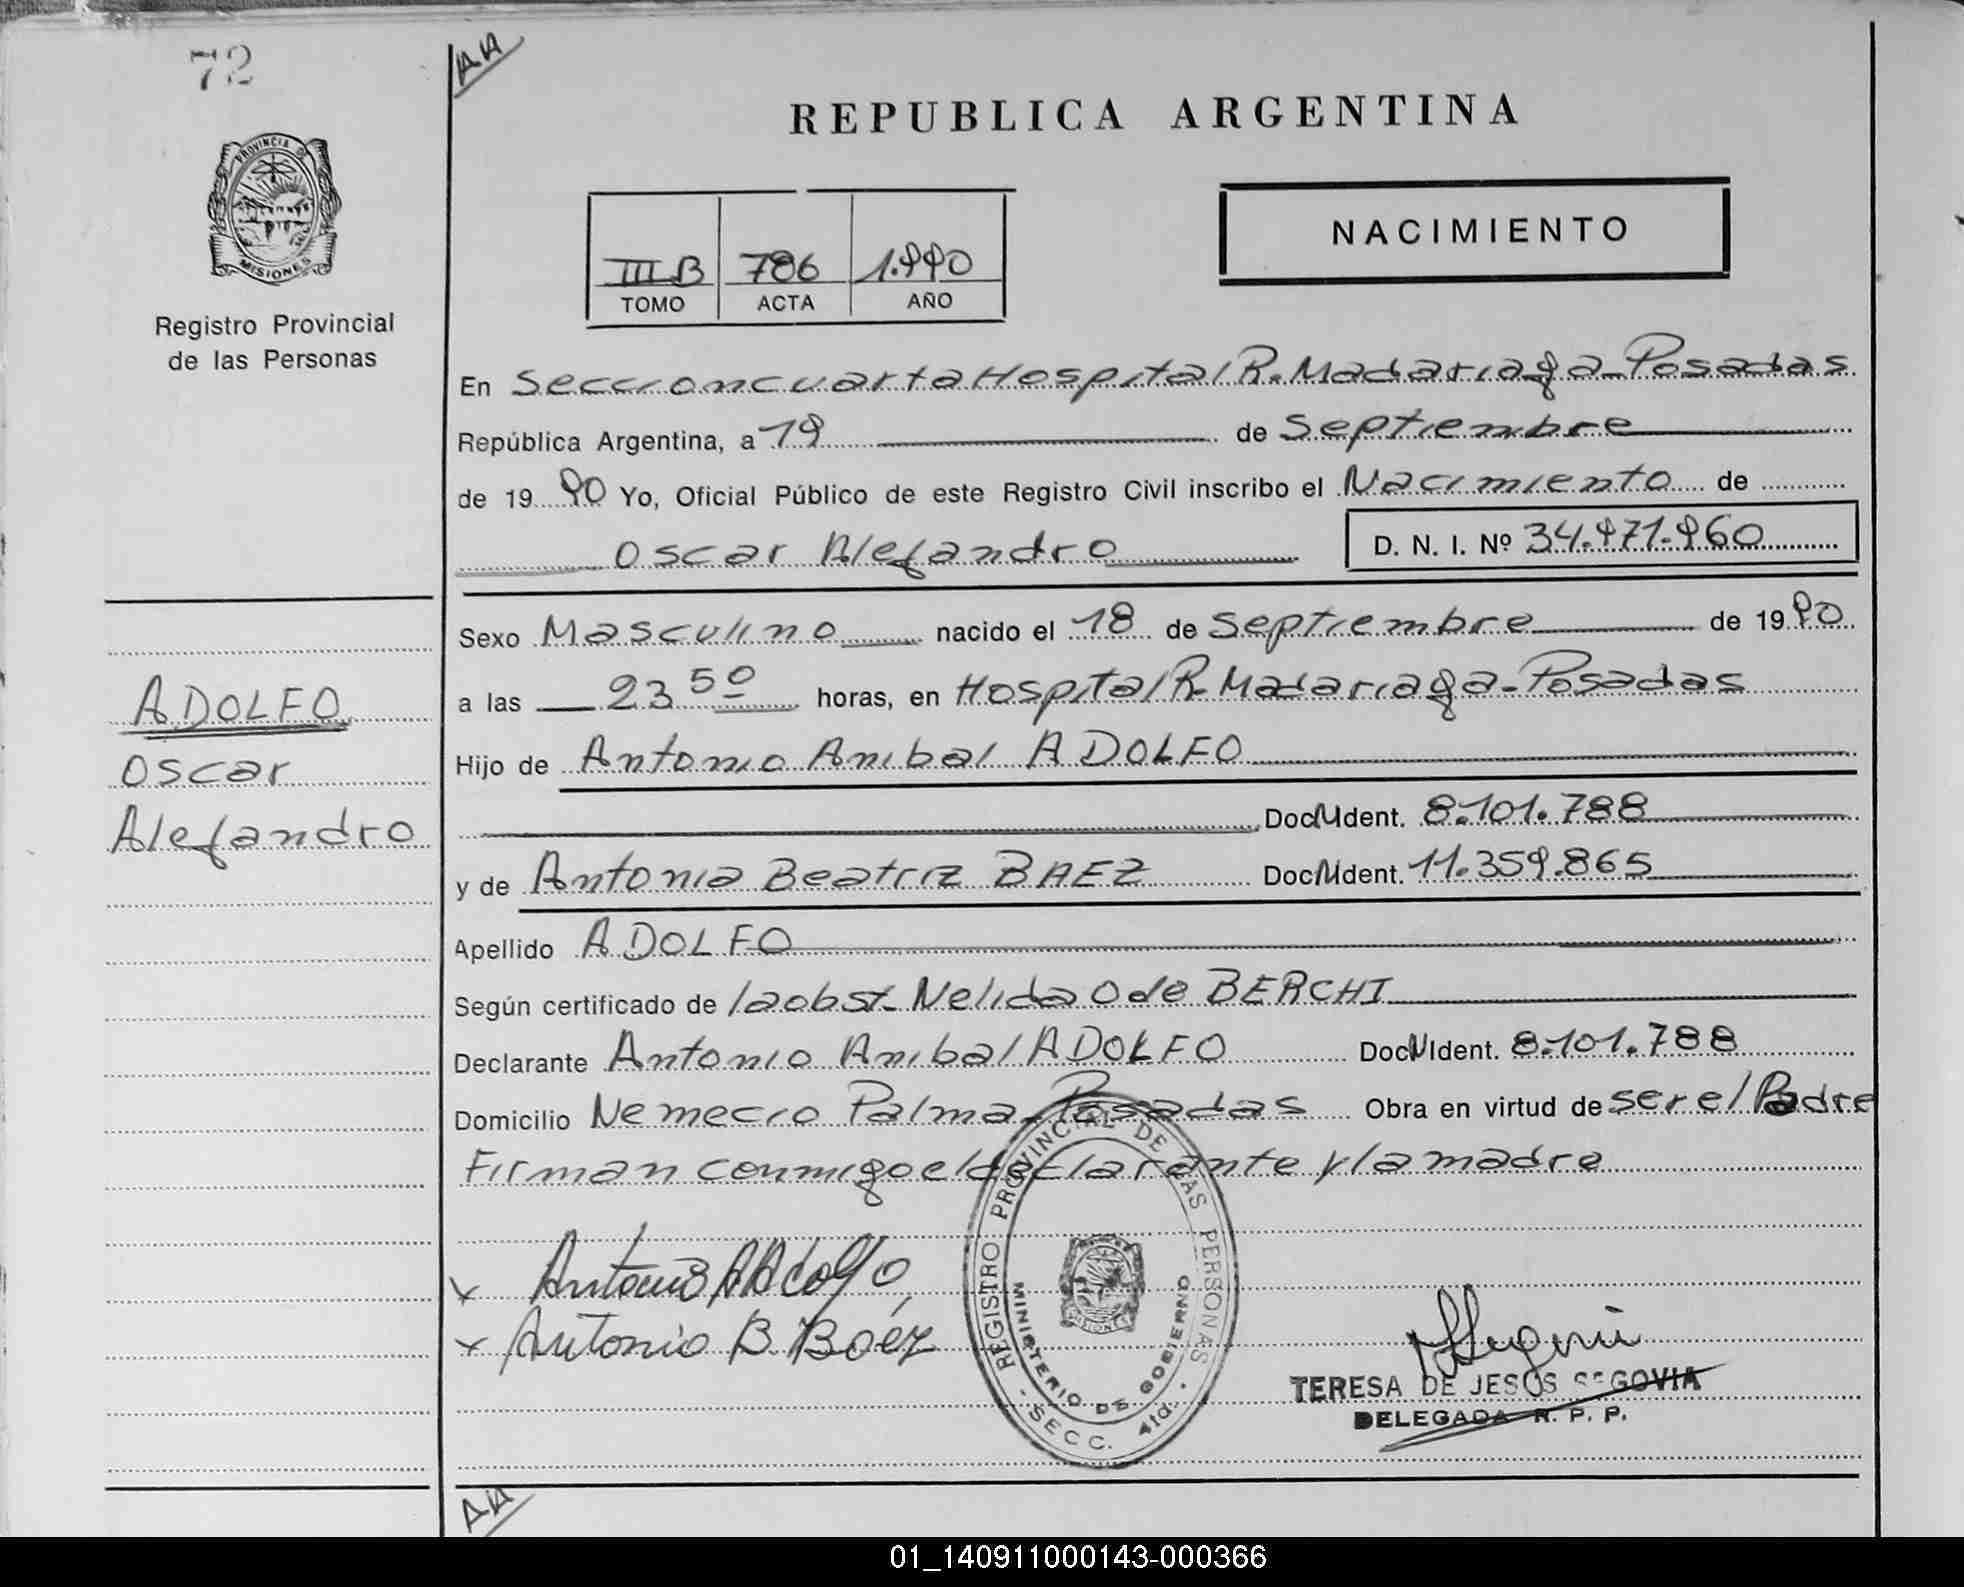 72
AA
REPUBLICA ARGENTINA
PROVINCIA DE
MISIONES
Registro Provincial
de las Personas
III B 786 1.990
TOMO ACTA AÑO
NACIMIENTO
En Seccion cuarta Hospital R. Madariaga - Posadas
República Argentina, a 19 de Septiembre
de 19 90 Yo, Oficial Público de este Registro Civil inscribo el Nacimiento de
Oscar Alejandro D. N. I. Nº 34.971.960
Sexo Masculino nacido el 18 de Septiembre de 19 90
a las 23 50 horas, en Hospital R. Madariaga - Posadas
Hijo de Antonio Anibal ADOLFO
Doc. Ident. 8.101.788
y de Antonia Beatriz BAEZ Doc. Ident. 11.359.865
Apellido ADOLFO
Según certificado de la obst. Nelida O de BERCHI
Declarante Antonio Anibal ADOLFO Doc. Ident. 8.101.788
Domicilio Nemecio Palma - Posadas Obra en virtud de ser el Padre
Firman conmigo el declarante y la madre
ADOLFO
Oscar
Alejandro
x Antonio A Adolfo
x Antonio B. Baéz
REGISTRO PROVINCIAL DE LAS PERSONAS
MINISTERIO DE GOBIERNO
MISIONES
- SECC. 4ta. -
TERESA DE JESUS SEGOVIA
DELEGADA R. P. P.
AA
01_140911000143-000366